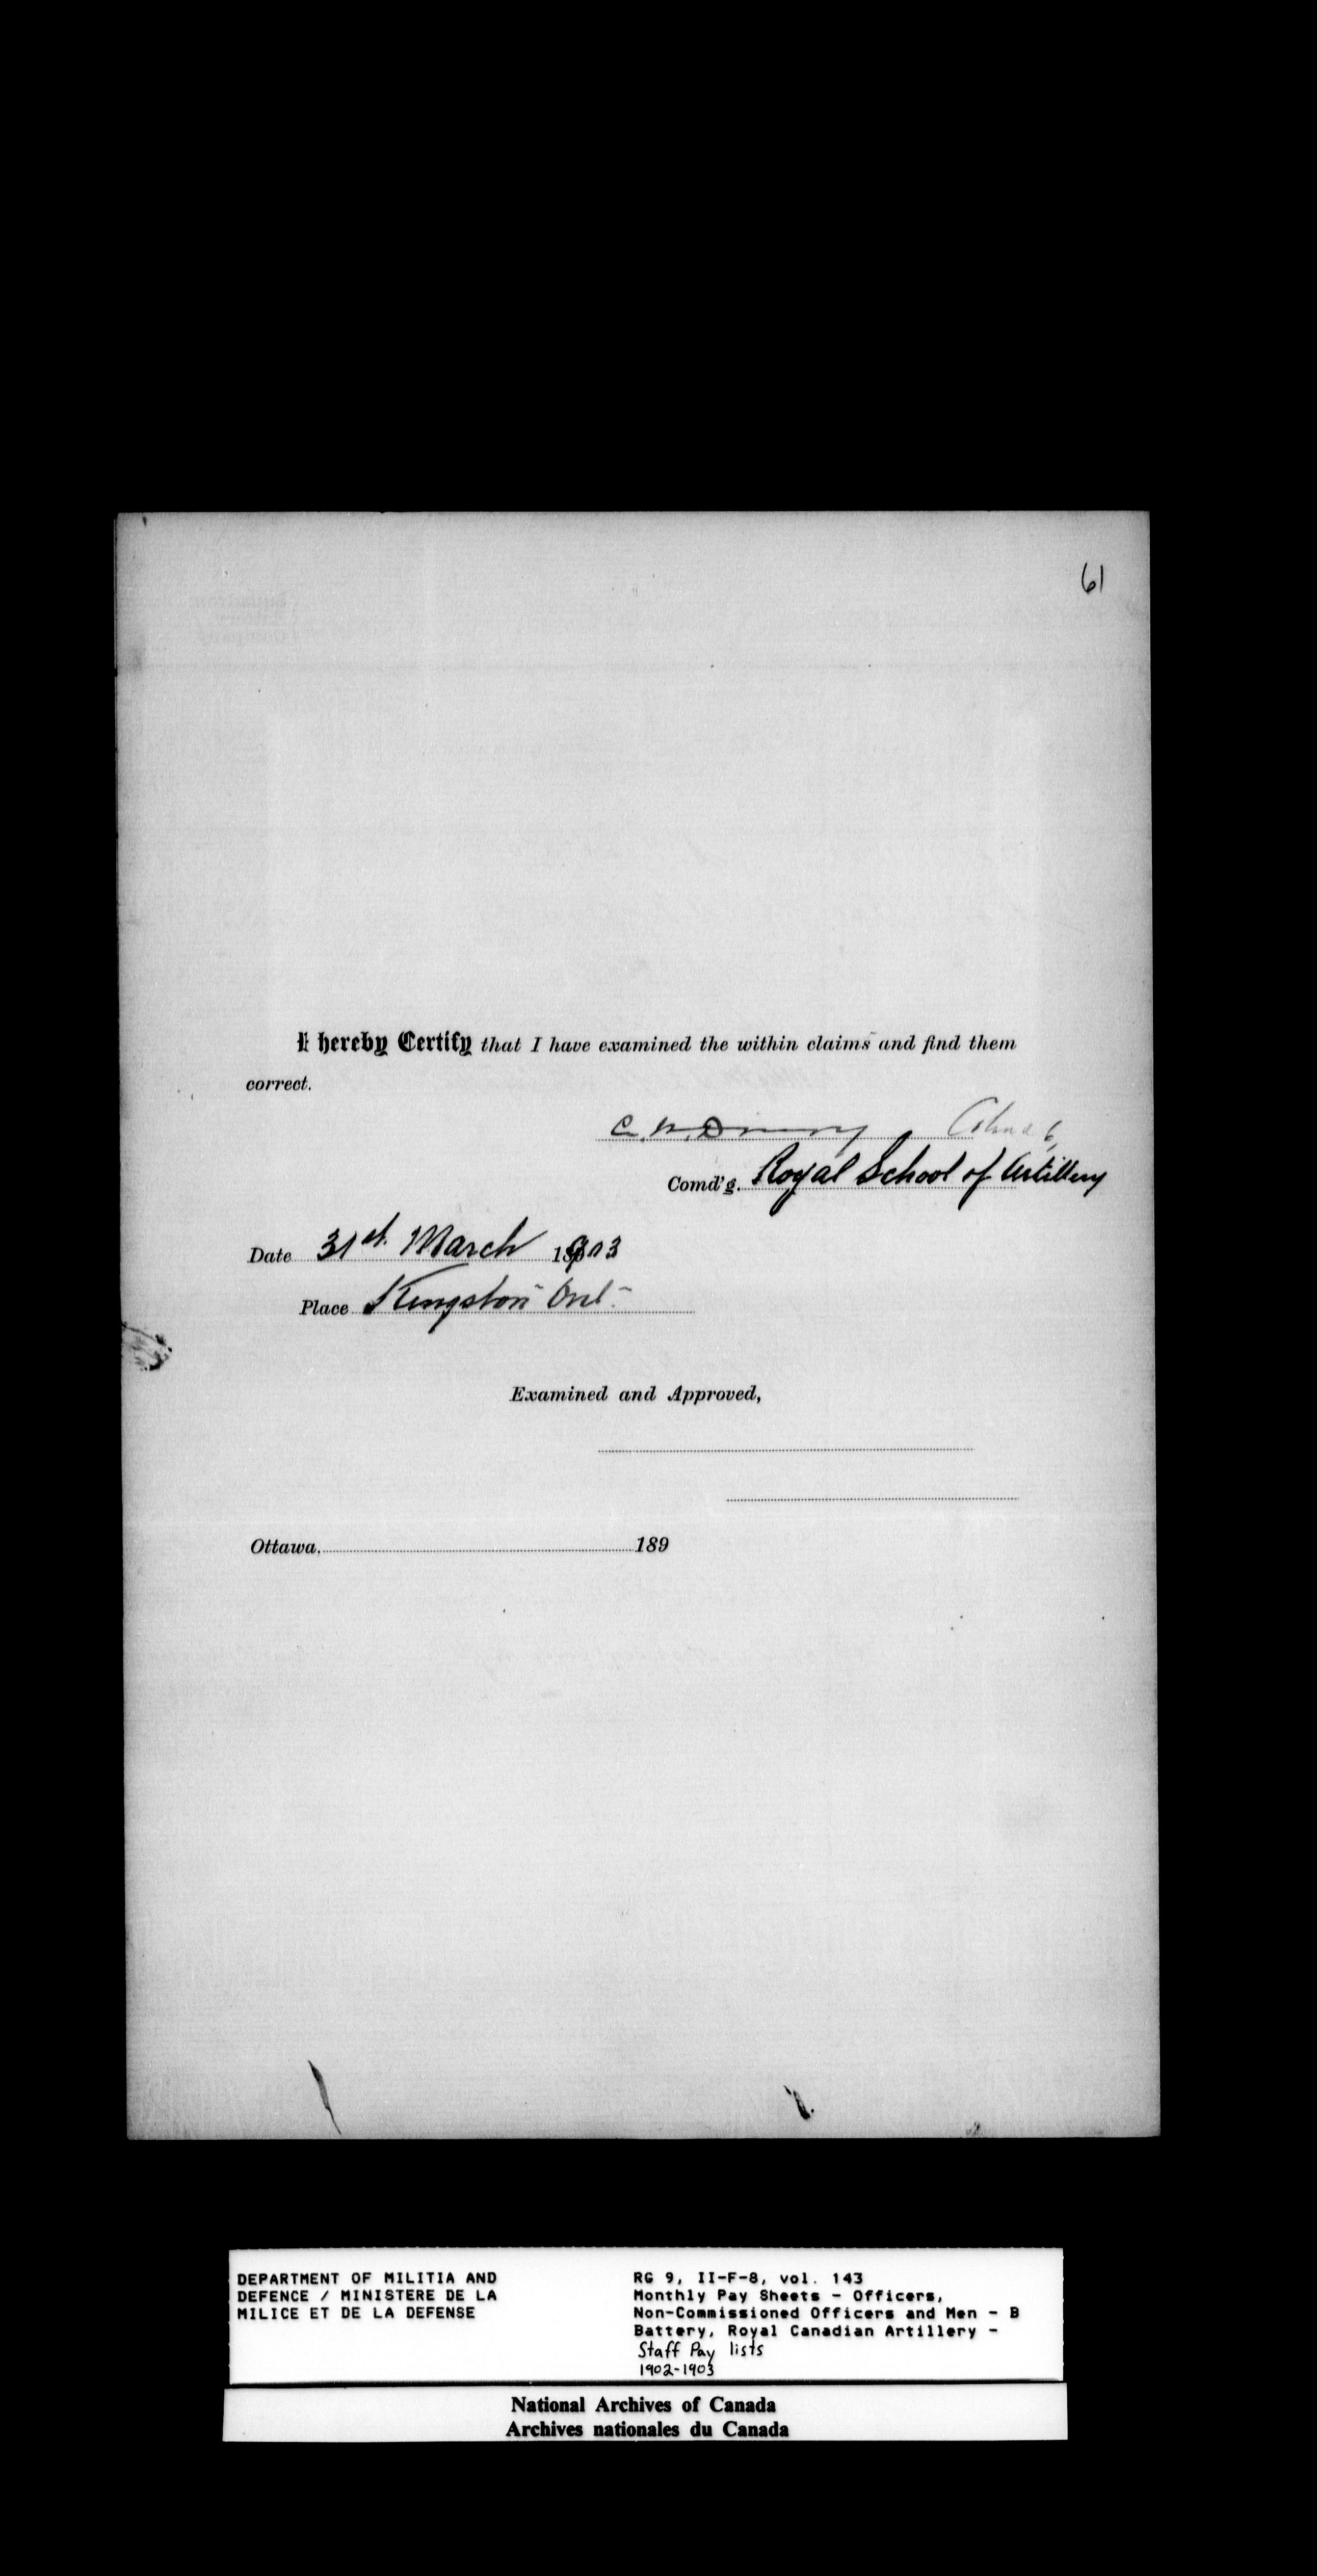 61
I hereby Certify that I have examined the within claims and find them
correct.
C. W. Drury
Comd'g. Royal School of Artillery
Date 31st. March 1903
Place Kingston Ont.
Examined and Approved,
Ottawa. 189
DEPARTMENT OF MILITIA AND
DEFENCE / MINISTERE DE LA
MILICE ET DE LA DEFENSE
RG 9, II-F-8, vol. 143
Monthly Pay Sheets - Officers,
Non-Commissioned Officers and Men - B
Battery, Royal Canadian Artillery -
Staff Pay lists
1902-1903
National Archives of Canada
Archives nationales du Canada